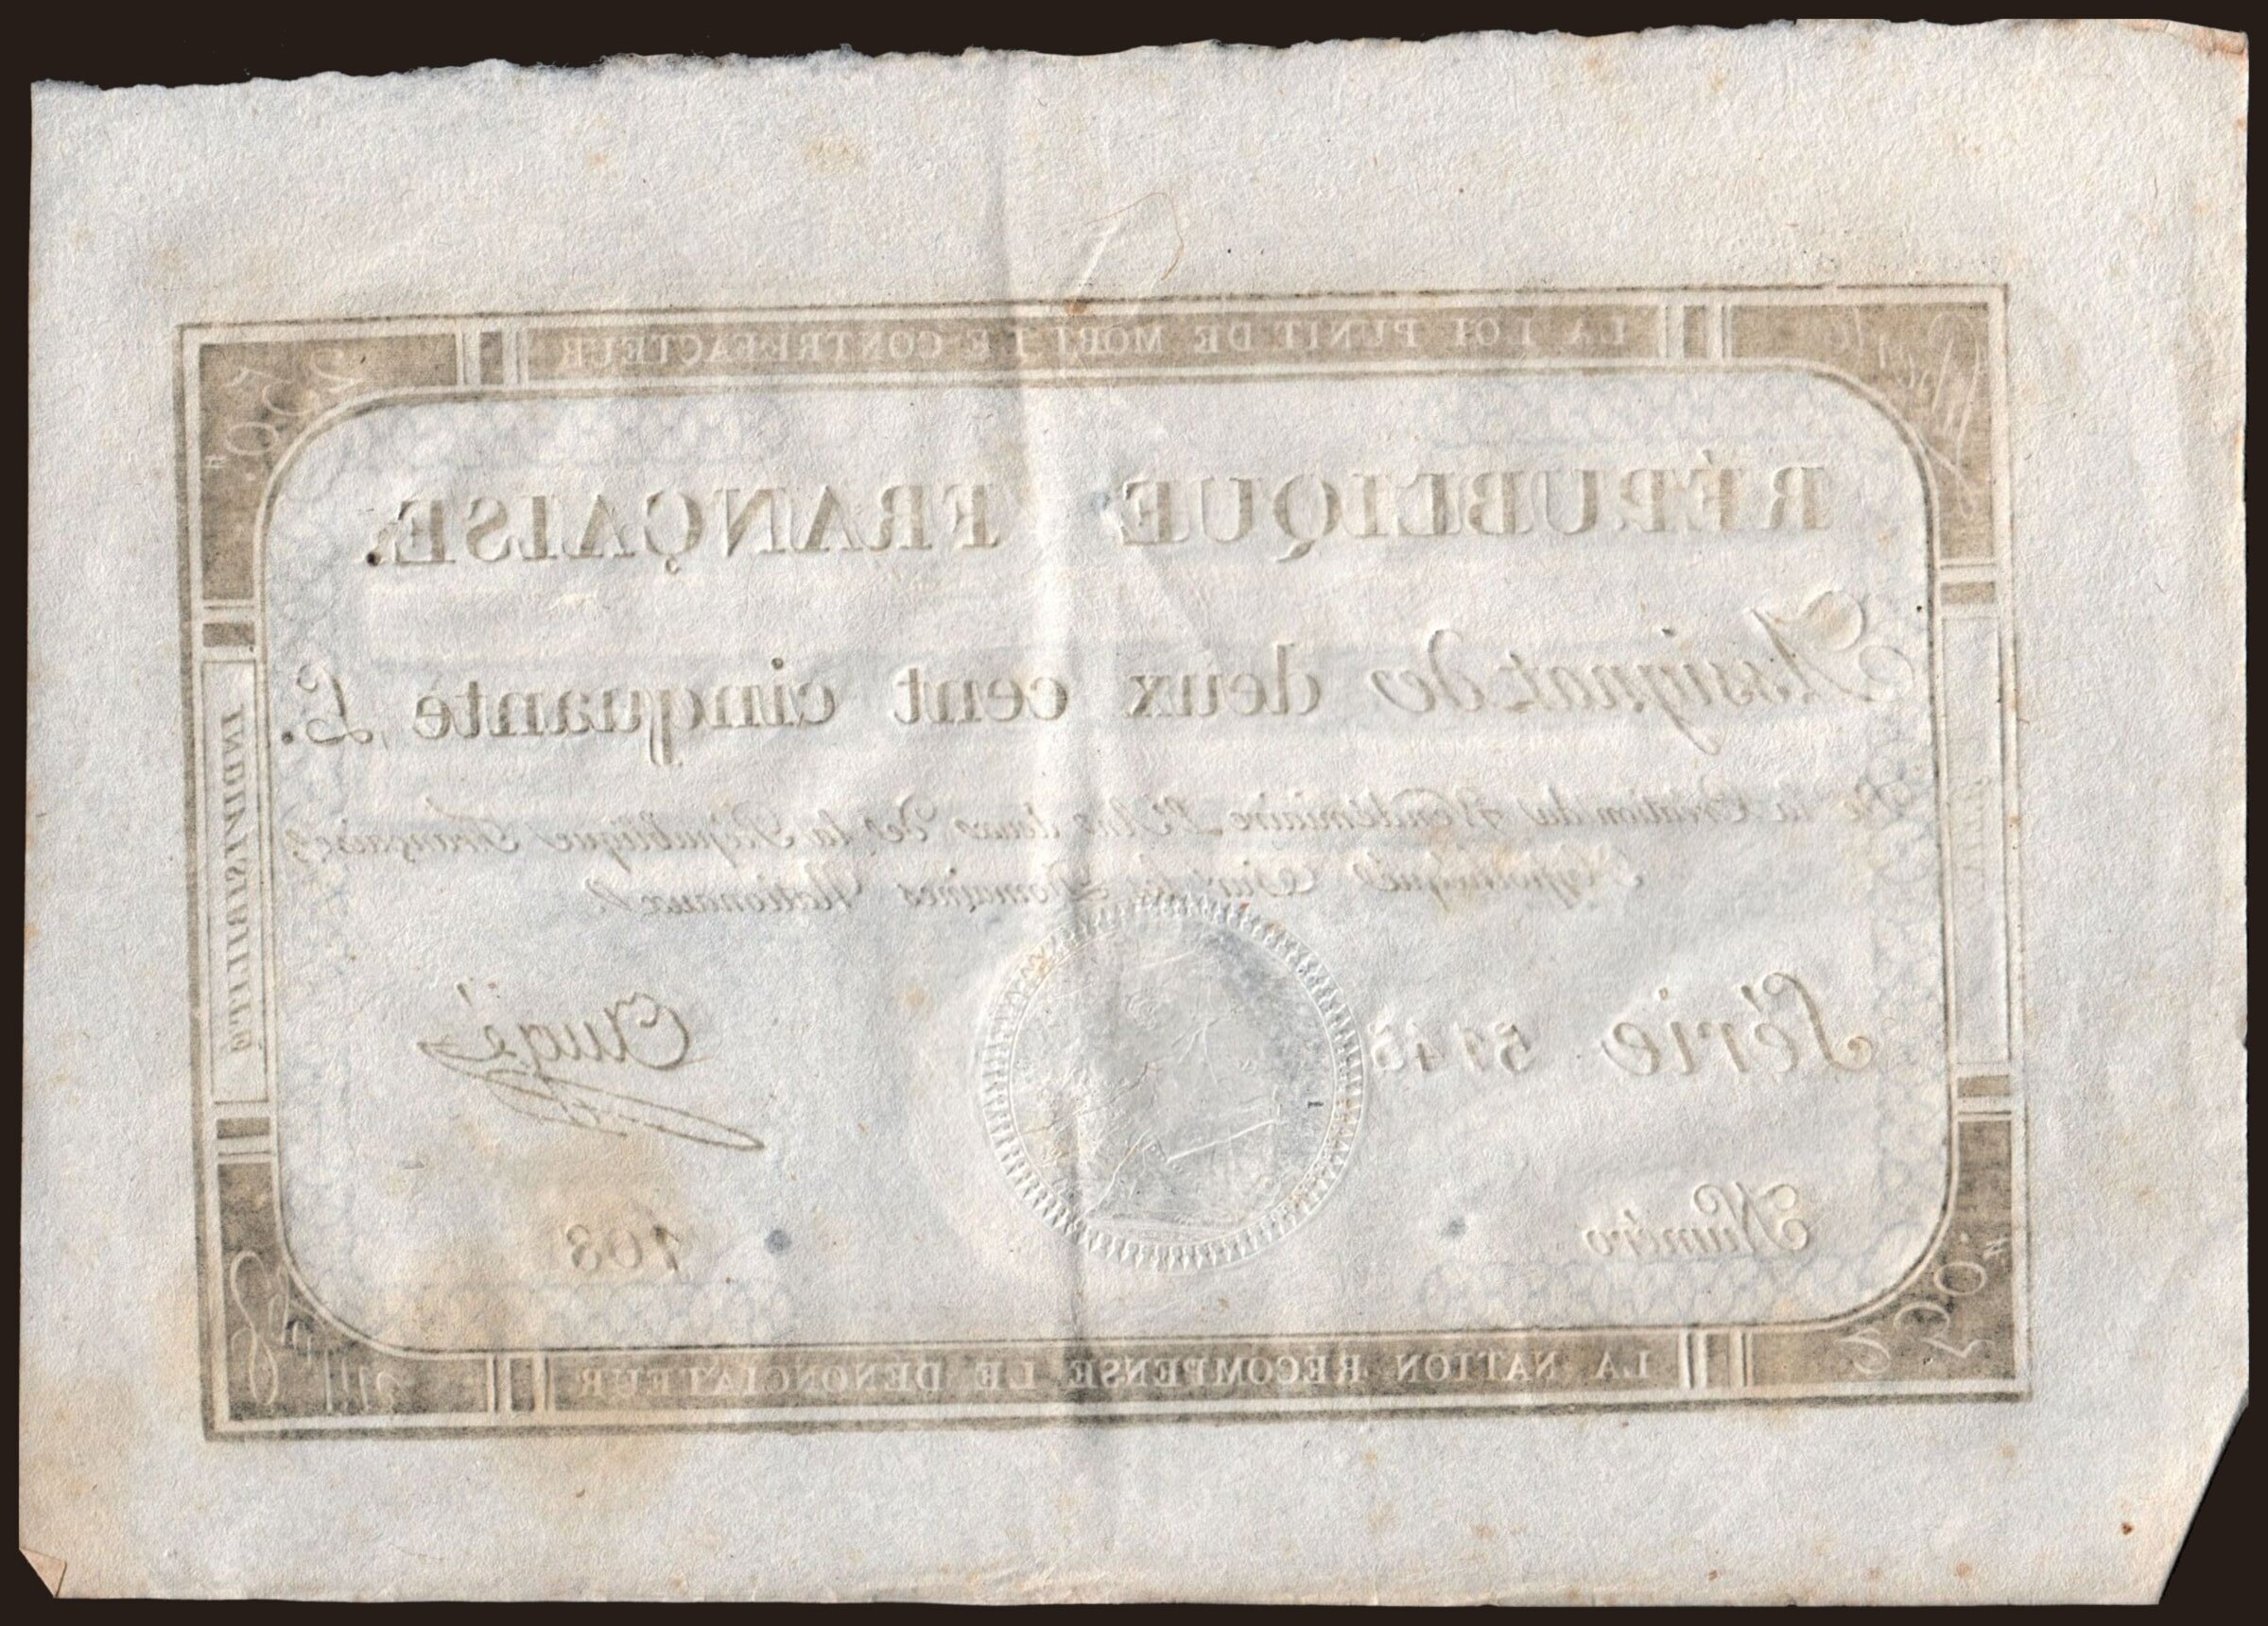 LA LOI PUNIT DE MORT LE CONTREFACTEUR
250
RÉPUBLIQUE FRANÇAISE.
Assignat de deux cent cinquante L.
De la Création du 7 Vendémiaire l'An deux de la République Française,
Hypothéqué Sur les Domaines Nationaux.
Série
Augé
Numéro
108
INDIVISIBILITÉ
LA NATION RECOMPENSE LE DENONCIATEUR